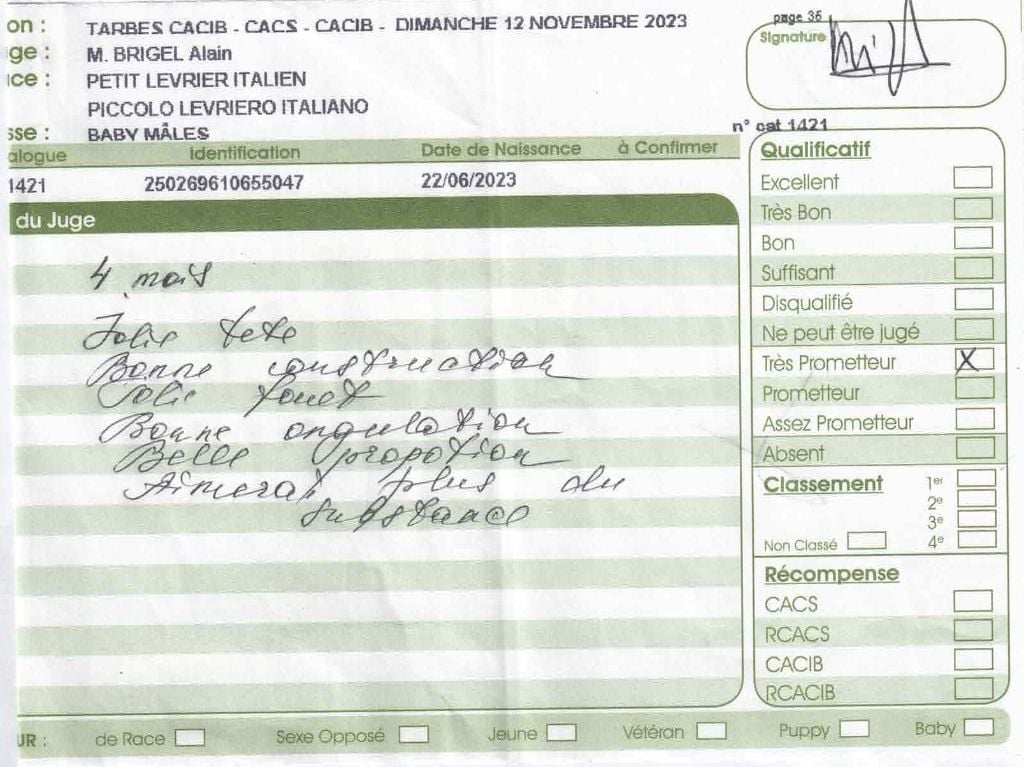 on : TARBES CACIB - CACS - CACIB - DIMANCHE 12 NOVEMBRE 2023
page 36
Signature
ge : M. BRIGEL Alain
ce : PETIT LEVRIER ITALIEN
PICCOLO LEVRIERO ITALIANO
sse : BABY MÂLES
n° cat 1421
alogue Identification Date de Naissance à Confirmer
1421 250269610655047 22/06/2023
du Juge
4 mois
Jolie tete
Bonne construction
Jolie fouet
Bonne angulation
Belle propotion
Aimerai plus du
substance
Qualificatif
Excellent
Très Bon
Bon
Suffisant
Disqualifié
Ne peut être jugé
Très Prometteur X
Prometteur
Assez Prometteur
Absent
Classement 1er
2e
3e
Non Classé 4e
Récompense
CACS
RCACS
CACIB
RCACIB
UR : de Race Sexe Opposé Jeune Vétéran Puppy Baby